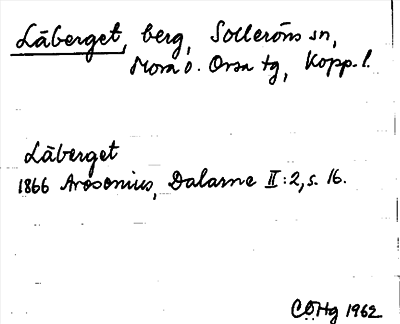 Låberget, berg, Solleröns sn,
Mora o. Orsa tg, Kopp. l.
Låberget
1866 Arosenius, Dalarne II:2, s. 16.
CÖHg 1962